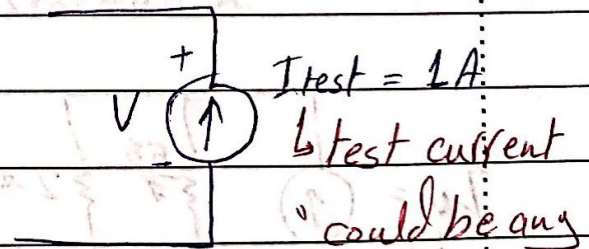 +
V
-
Itest = 1A
↳ test current
"could be any